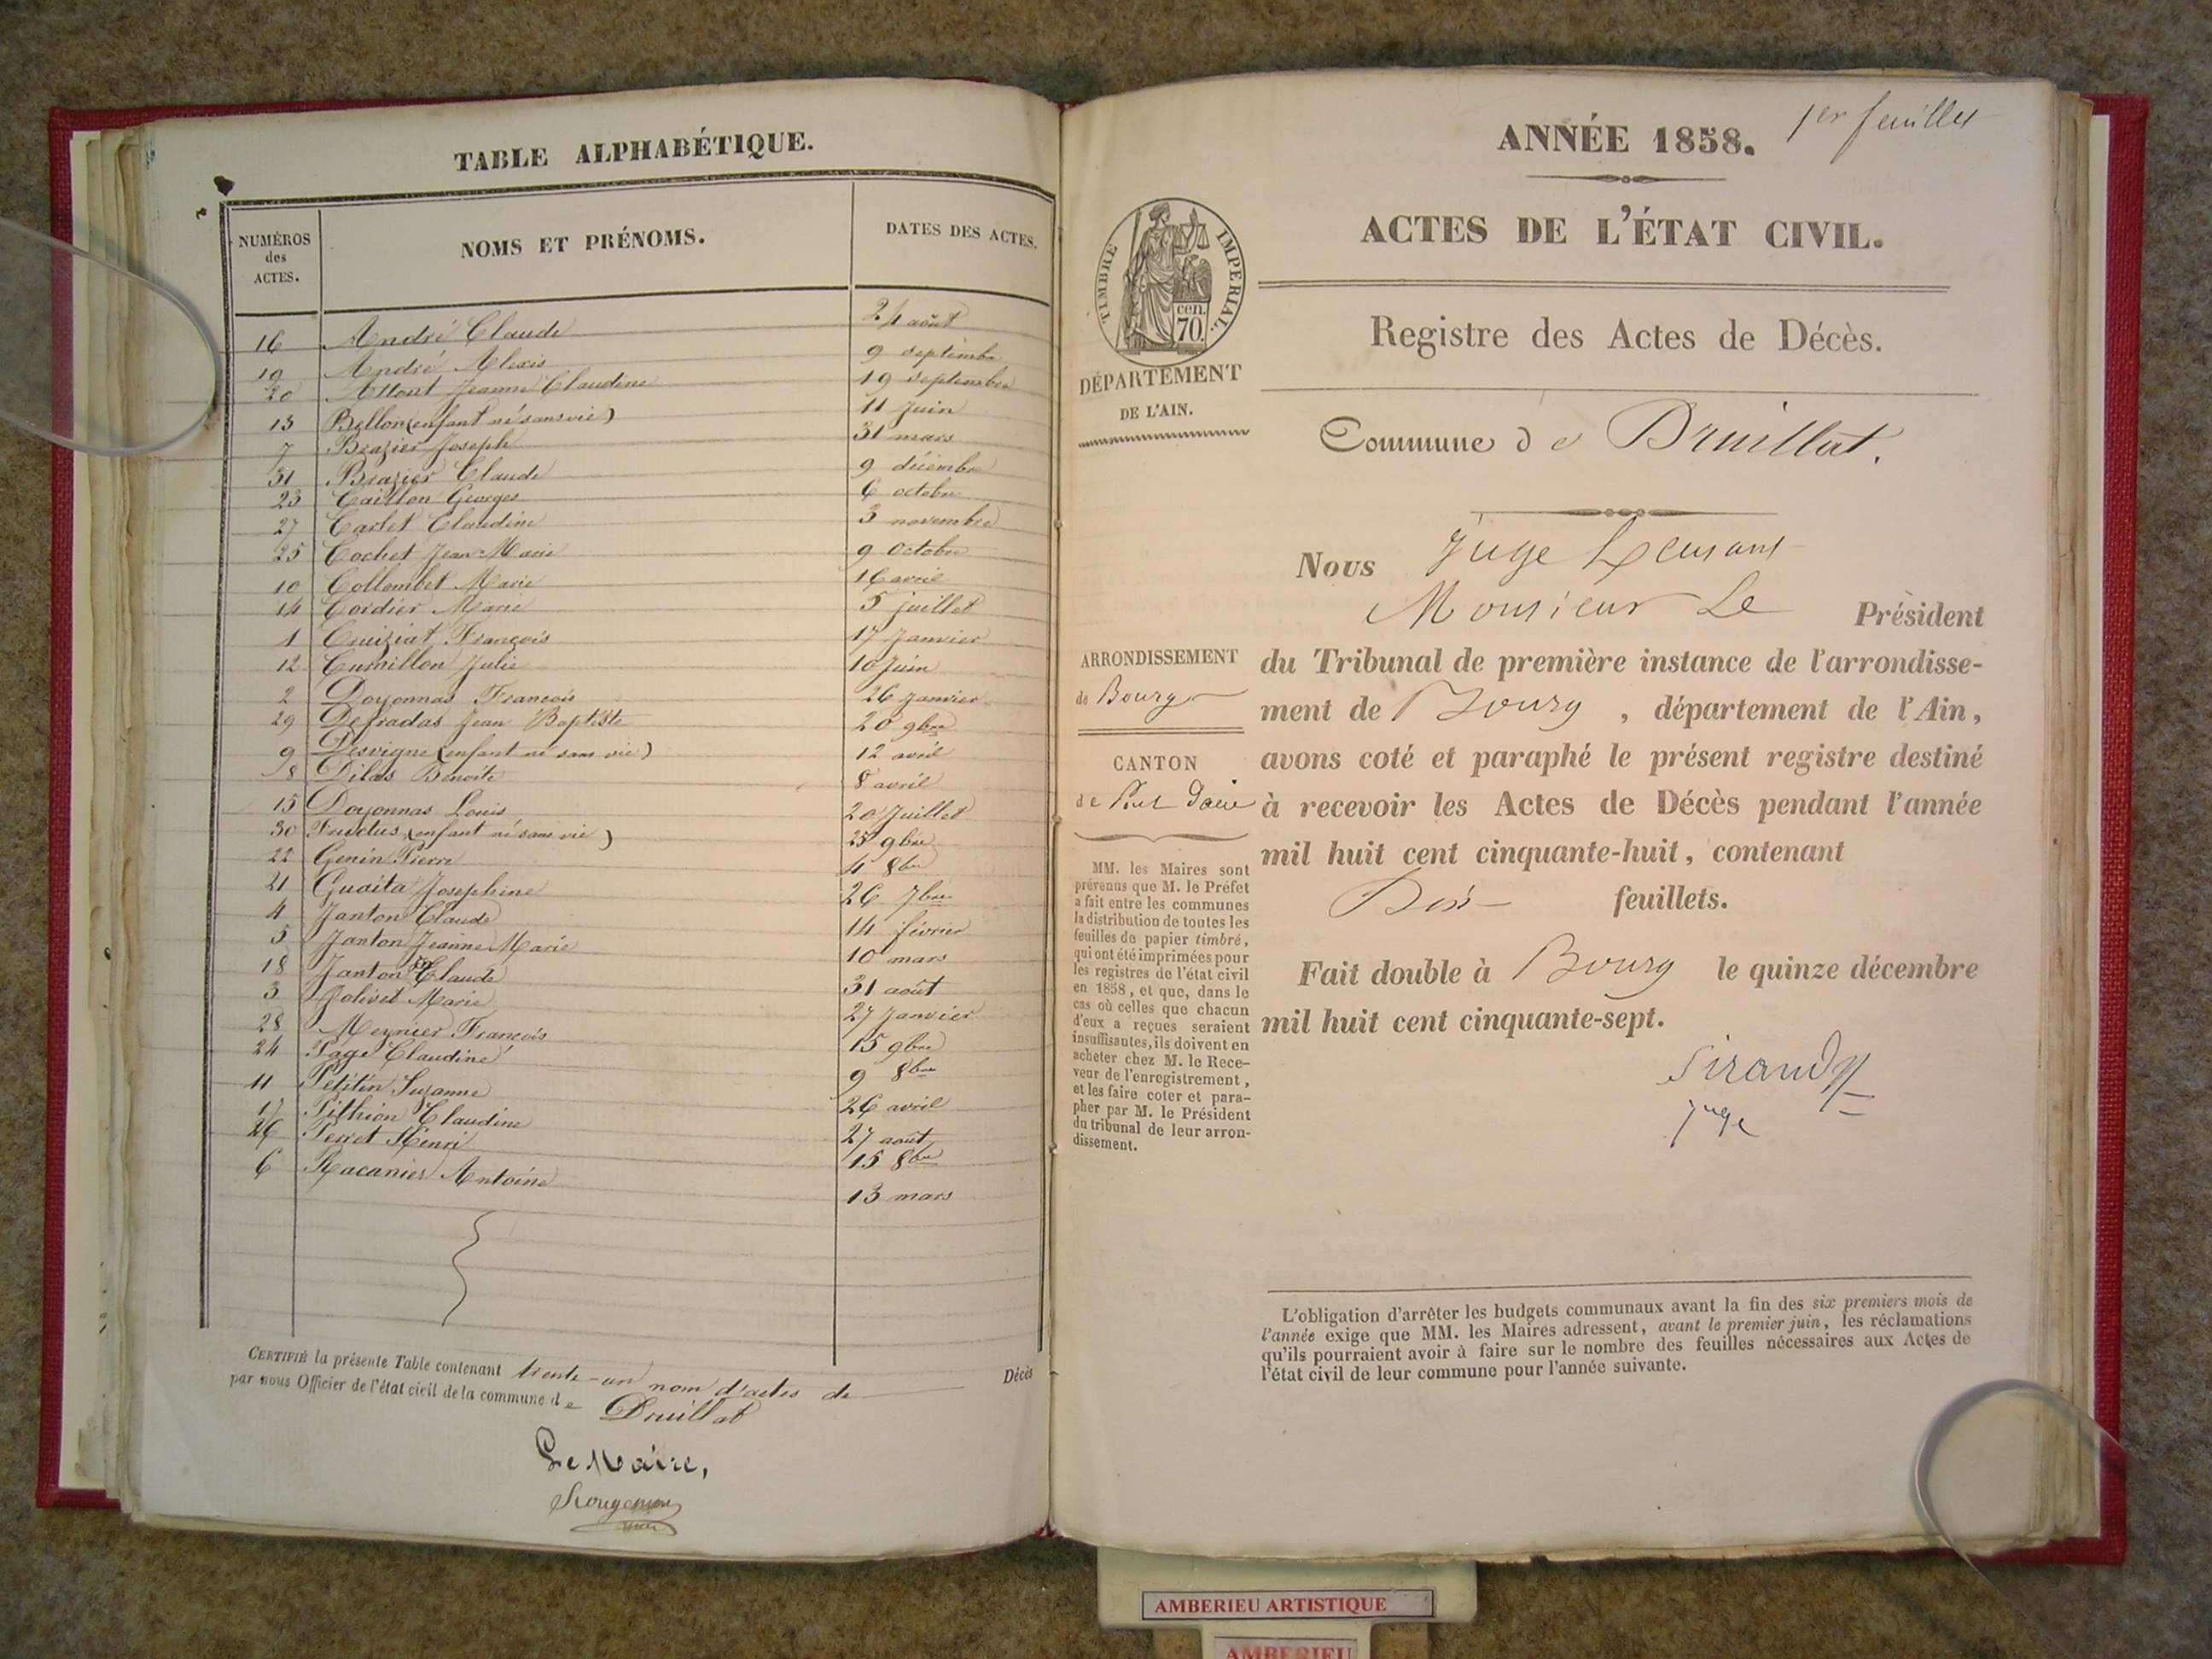 TABLE ALPHABÉTIQUE.
NUMÉROS des ACTES. NOMS ET PRÉNOMS. DATES DES ACTES.
16 André Claude 24 août
19 André Alexis 9 septembre
20 Attout Jeanne Claudine 19 septembre
13 Bellon (enfant né sans vie) 11 Juin
7 Brazier Joseph 31 mars
31 Brazier Claude 9 décembre
23 Caillon Georges 6 octobre
27 Carlet Claudine 3 novembre
25 Cochet Jean-Marie 9 Octobre
10 Collombet Marie 16 avril
14 Cordier Marie 5 juillet
1 Cruiziat François 17 Janvier
12 Curnillon Julie 10 Juin
2 Doyonnas François 26 Janvier
29 Defradas Jean Baptiste 20 9bre
9 Desvigne (enfant né sans vie) 12 avril
8 Dilas Benoîte 8 avril
15 Doyonnas Louis 20 Juillet
30 (enfant né sans vie) 25 9bre
22 Genin Pierre 4 8bre
21 Guaita Joséphine 26 7bre
4 Janton Claude 14 février
5 Janton Jeanne Marie 10 mars
18 Janton Claude 31 août
3 Jolivet Marie 27 Janvier
28 Meynier François 15 9bre
24 Page Claudine 9 8bre
11 Petitin Suzanne 26 avril
17 Pithion Claudine 27 août
26 Perret Henri 15 8bre
6 Racanier Antoine 13 mars
CERTIFIÉ la présente Table contenant trente-un nom d'actes de Décès
par nous Officier de l'état civil de la commune de Druillat
Le Maire,
1er feuillet
ANNÉE 1858.
ACTES DE L'ÉTAT CIVIL.
TIMBRE IMPERIAL.
cen.
70.
Registre des Actes de Décès.
DÉPARTEMENT
DE L'AIN.
Commune de Druillat.
Nous Juge
Monsieur Le Président
du Tribunal de première instance de l'arrondisse-
ment de Bourg, département de l'Ain,
avons coté et paraphé le présent registre destiné
à recevoir les Actes de Décès pendant l'année
mil huit cent cinquante-huit, contenant
Dix feuillets.
Fait double à Bourg le quinze décembre
mil huit cent cinquante-sept.
Sirandy
Juge
ARRONDISSEMENT
de Bourg
CANTON
de Pont d'ain
MM. les Maires sont
prévenus que M. le Préfet
a fait entre les communes
la distribution de toutes les
feuilles de papier timbré,
qui ont été imprimées pour
les registres de l'état civil
en 1858, et que, dans le
cas où celles que chacun
d'eux a reçues seraient
insuffisantes, ils doivent en
acheter chez M. le Rece-
veur de l'enregistrement,
et les faire coter et para-
pher par M. le Président
du tribunal de leur arron-
dissement.
L'obligation d'arrêter les budgets communaux avant la fin des six premiers mois de
l'année exige que MM. les Maires adressent, avant le premier juin, les réclamations
qu'ils pourraient avoir à faire sur le nombre des feuilles nécessaires aux Actes de
l'état civil de leur commune pour l'année suivante.
AMBERIEU ARTISTIQUE
AMBERIEU